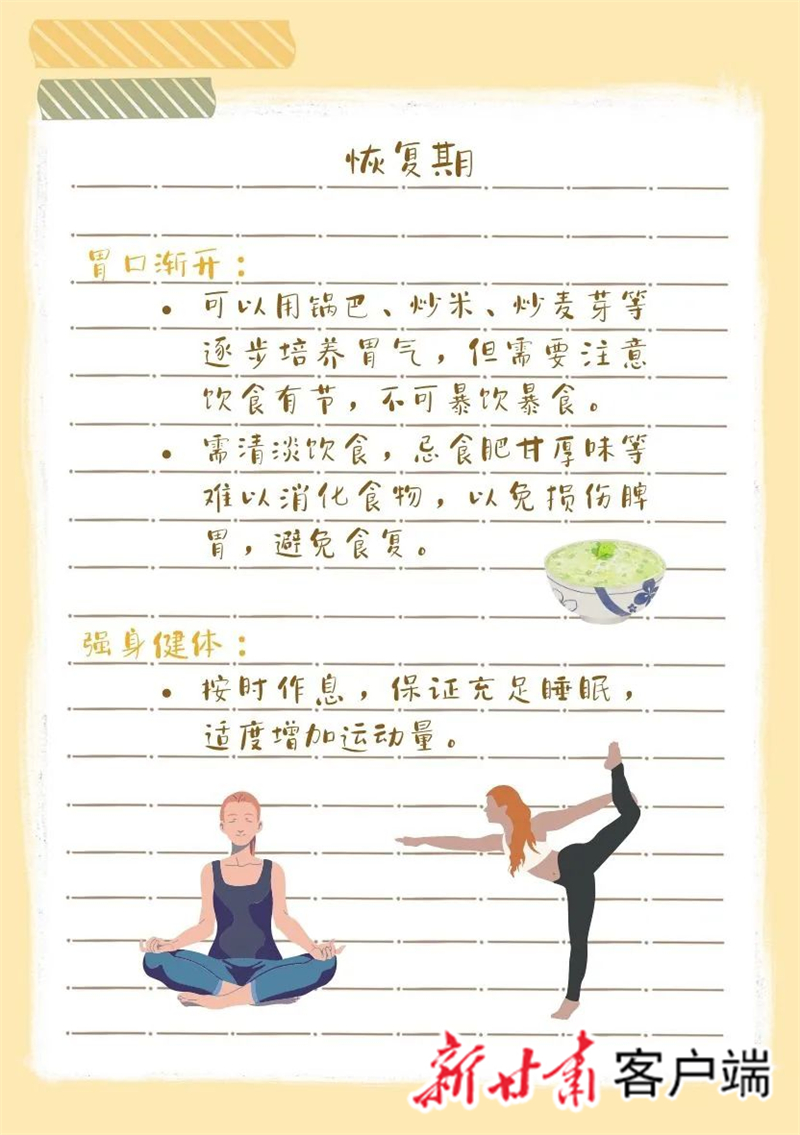 恢复期
胃口渐开：
• 可以用锅巴、炒米、炒麦芽等
逐步培养胃气，但需要注意
饮食有节，不可暴饮暴食。
• 需清淡饮食，忌食肥甘厚味等
难以消化食物，以免损伤脾
胃，避免食复。
强身健体：
• 按时作息，保证充足睡眠，
适度增加运动量。
新甘肃 客户端